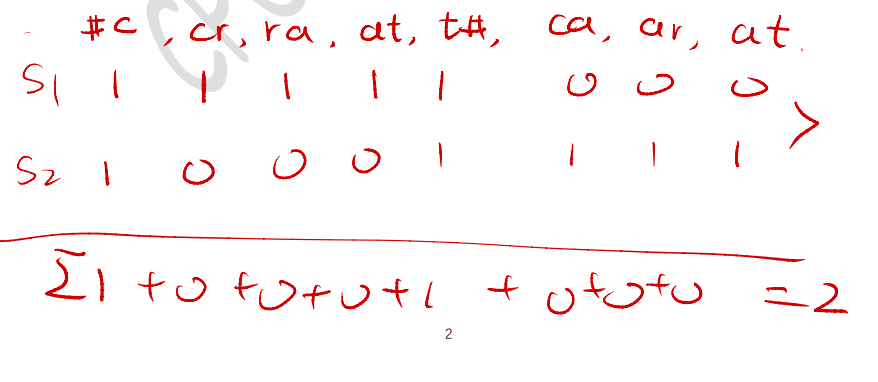 #c , cr, ra, at, t#, ca, ar, at.
S1 1 1 1 1 1 0 0 0
S2 1 0 0 0 1 1 1 1 >
Σ1 + 0 + 0 + 0 + 1 + 0 + 0 + 0 = 2
2